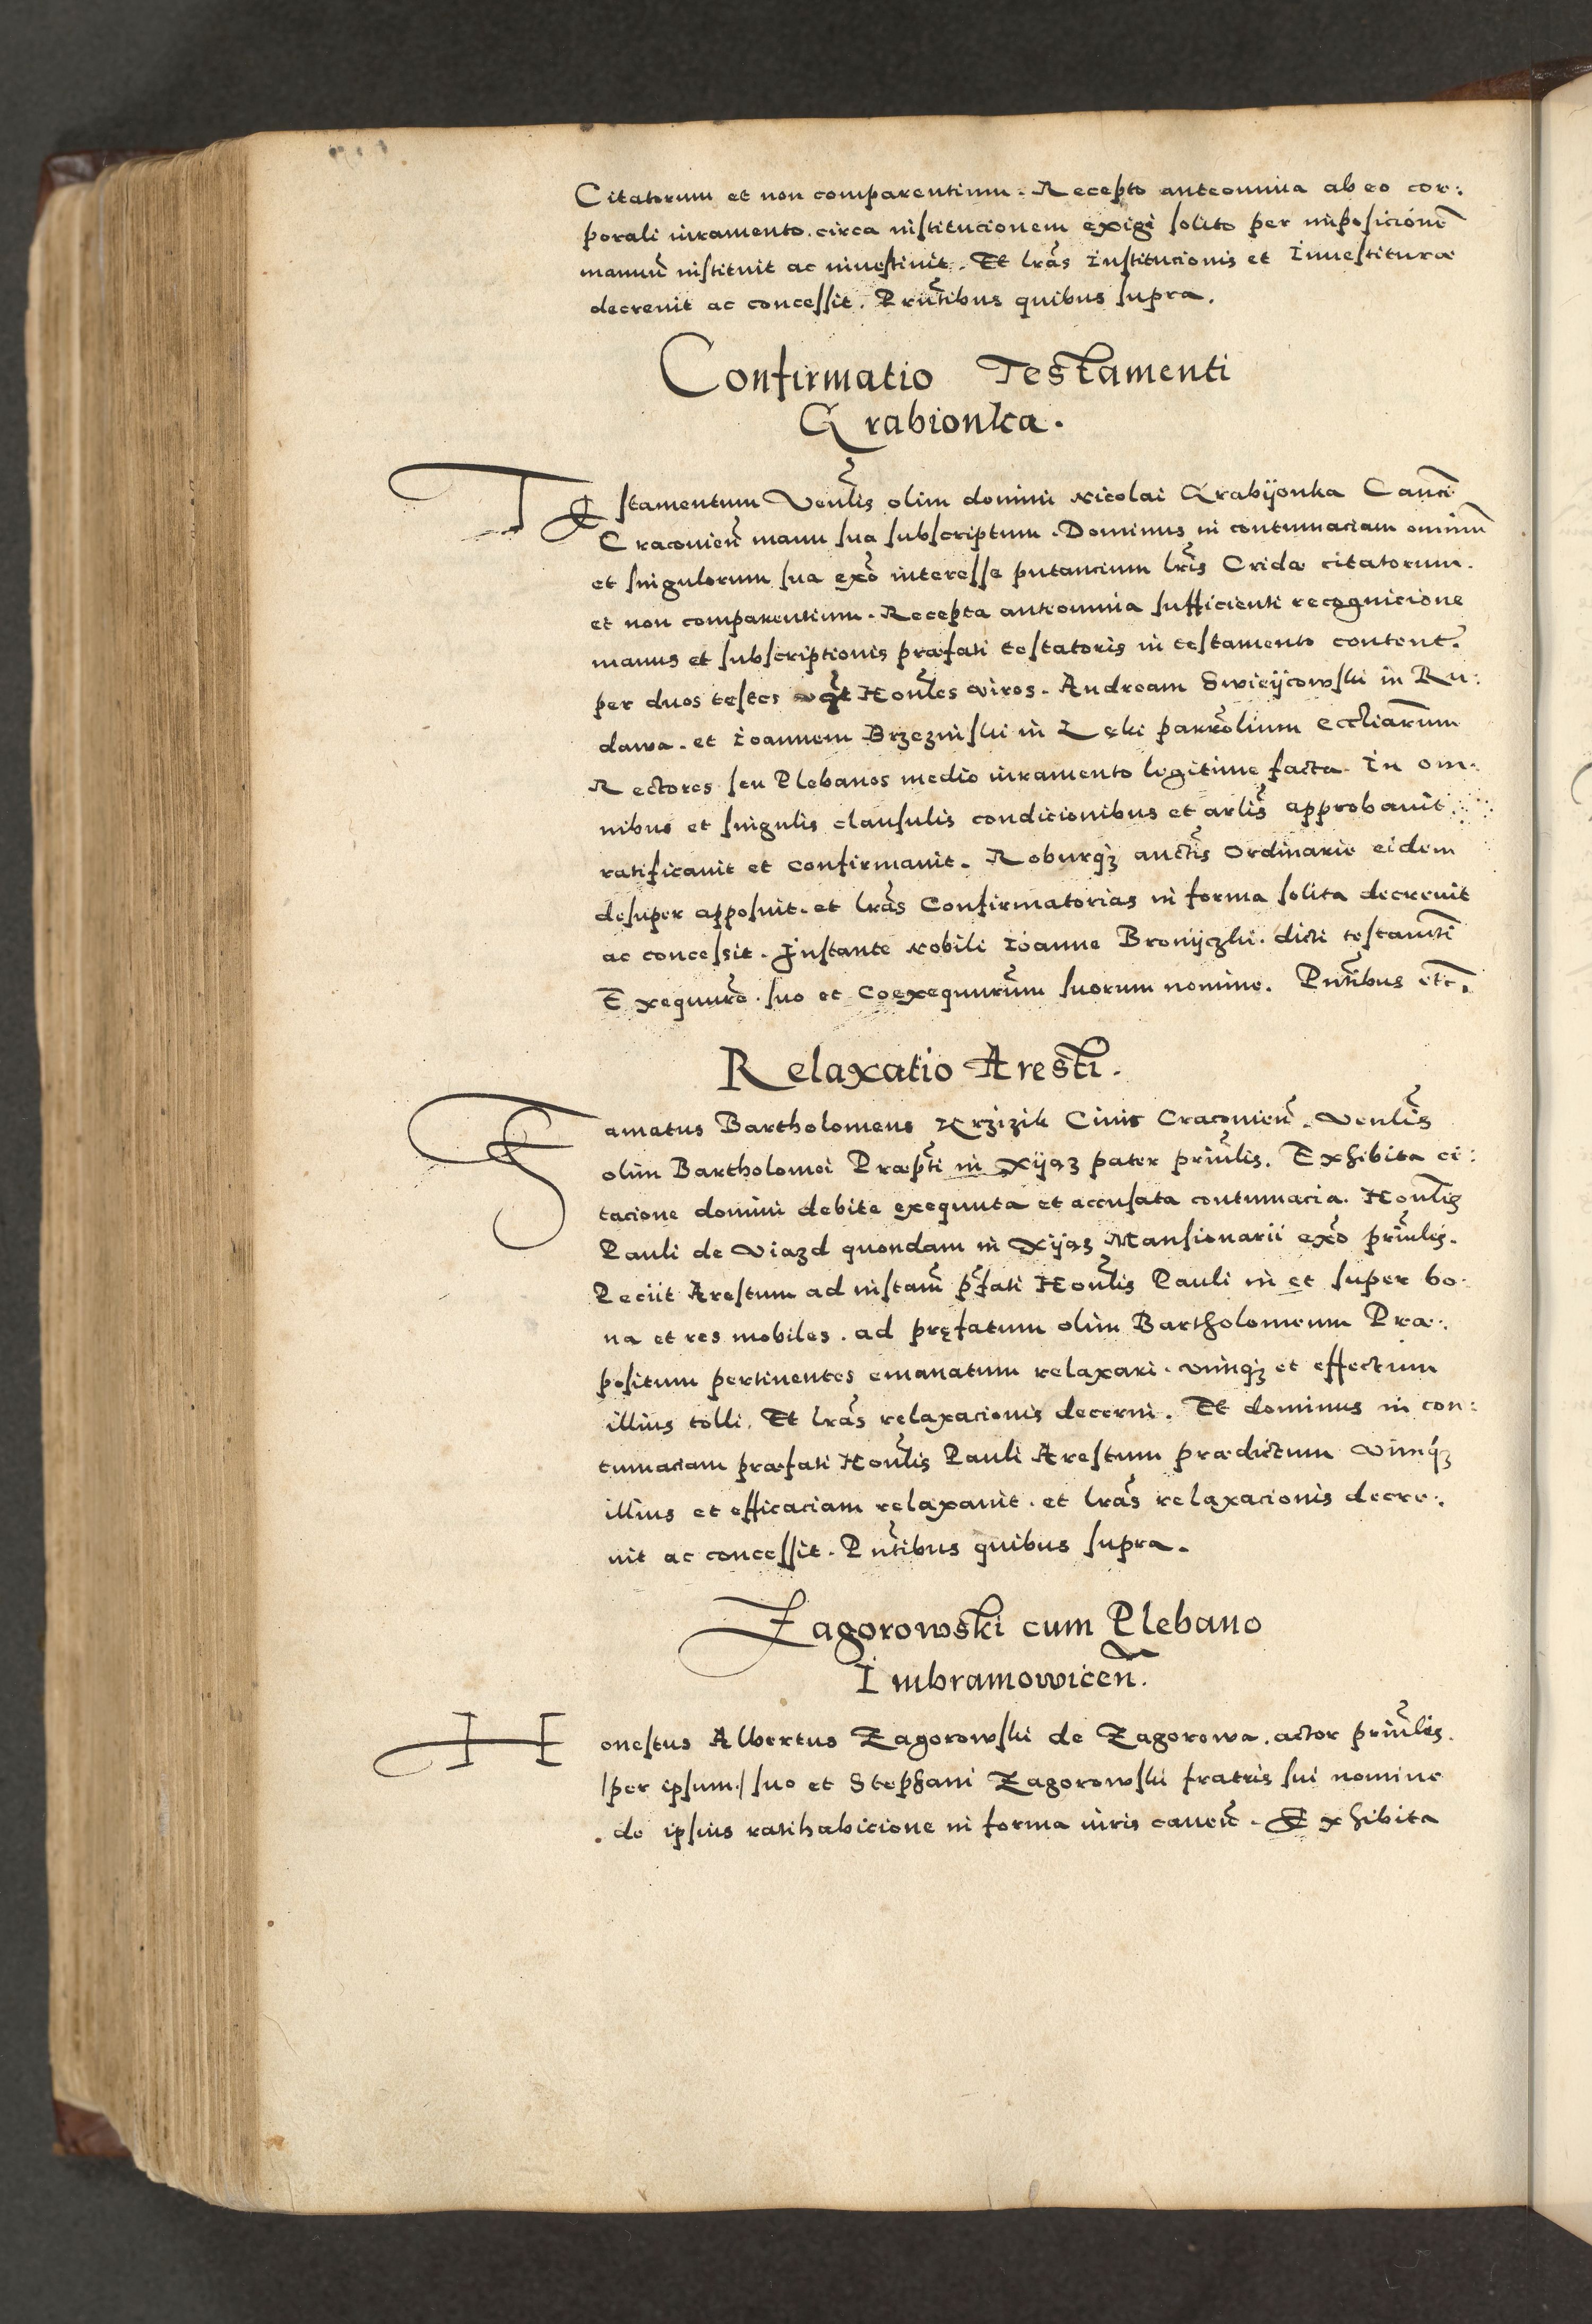 Citatorum et non comparentium. Recepto anteomnia ab eo cor:
porali iuramento. circa institucionem exigi solito per imposicionē
manuū instituit ac inuestiuit. Et lrãs Institucionis et Inuestiturae
decreuit ac concessit. Prñtibus quibus supra.
Confirmatio Testamenti
Grabionka.
Testamentum Venlĩs olim domini Nicolai Grabijonka Canci
Cracouieñ manu sua subscriptum. Dominus in contumaciam omniũ
et singulorum sua exõ interesse putancium lrĩs Cridae citatorum.
et non comparentium. Recepta anteomnia sufficienti recognicione
manus et subscriptionis praefati testatoris in testamento content.
per duos testes Honlẽs viros. Andream Swieijcowski in Ru:
dawa. et Ioannem Brzezinski in Lęki parrõlium Eccliarum
Rectores seu Plebanos medio iuramento legitime facta. In om:
nibus et singulis clausulis condicionibus et artlĩs approbauit
ratificauit et confirmauit. Roburqȝ auctĩs Ordinarie eidem
desuper apposuit. et lrãs Confirmatorias in forma solita decreuit
ac concessit. Instante Nobili Ioanne Bronijczki. dicti testamti
Exequurẽ. suo et Coexequurũm suorum nomine. Pñtibus etc.
Relaxatio Aresti.
Famatus Bartholomeus Krzizik Ciuis Cracouieñ. Venlĩs
olim Bartholomei Praepti in Xijąz pater prinlĩs. Exhibita ci:
tacione domini debite exequuta et accusata contumacia. Honlĩs
Pauli de Viazd quondam in Xijąz Mansionarii exõ prinlĩs.
Peciit Arestum ad instañ pfati Honlĩs Pauli in et super bo:
na et res mobiles. ad pręfatum olim Bartholomeum Prae:
positum pertinentes emanatum relaxari. vimqȝ et effectum
illius tolli. Et lrãs relaxacionis decerni. Et dominus in con:
tumaciam praefati Honlĩs Pauli Arestum praedictum vimqȝ
illius et efficaciam relaxauit. et lrãs relaxacionis decre:
uit ac concessit. Pñtibus quibus supra.
Zagorowski cum Plebano
Imbramowiceñ.
Honestus Albertus Zagorowski de Zagorowa. actor prinlĩs.
/per ipsum/ suo et Stephani Zagorowski fratris sui nomine
. de ipsius ratihabicione in forma iuris caueñ. Exhibita